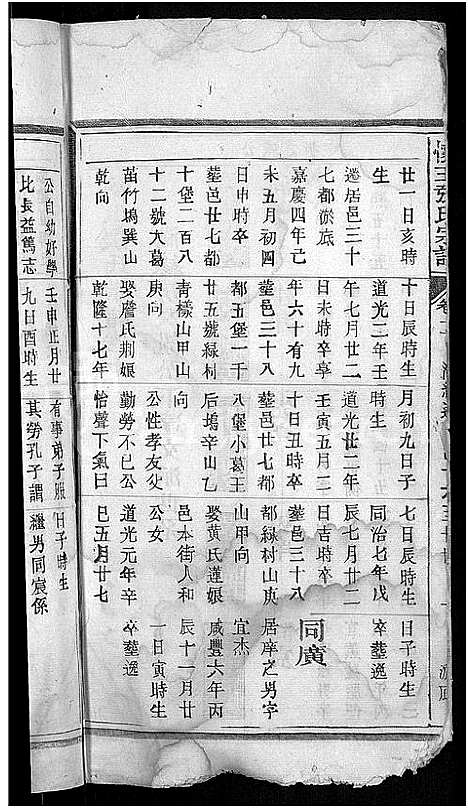 張氏宗譜
廿一日亥時
生
遷居邑三十
七都淤底
嘉慶四年己
未五月初四
日申時卒
葬邑廿七都
十堡二百八
十二號大葛
茁竹塢巽山
乾向
十日辰時生
道光二年壬
午七月廿二
日未時卒享
年六十有九
葬邑三十八
都五堡一千
廿五號緑村
青樣山甲山
庚向
娶詹氏荆娘
乾隆十七年
月初九日子
時生
道光廿二年
壬寅五月二
十日丑時卒
葬邑廿七都
八堡小葛王
后塢辛山乙
公性孝友父
勤勞不已公
怡聲下氣曰
七日辰時生
同治七年戊
辰七月廿二
日吉時卒
葬邑三十八
都緑村山庚
山甲向
娶黄氏蓮娘
邑本街人和
公女
道光元年辛
巳五月廿七
日子時生
卒葬逸
同廣
居庠之男字
宜杰
咸豐六年丙
辰十一月廿
一日寅時生
卒葬逸
公自幼好學
比長益篤志
壬申正月廿
九日酉時生
有事弟子服
其勞孔子謂
日子時生
繼男同宸係